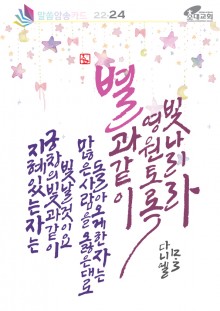 말씀암송카드 22-24
지혜있는자는
궁창의빛과같이
빛날것이요
많은사람을옳은데로
돌아오게한자는
별과같이
영원토록
빛나리라
다니엘 12:3